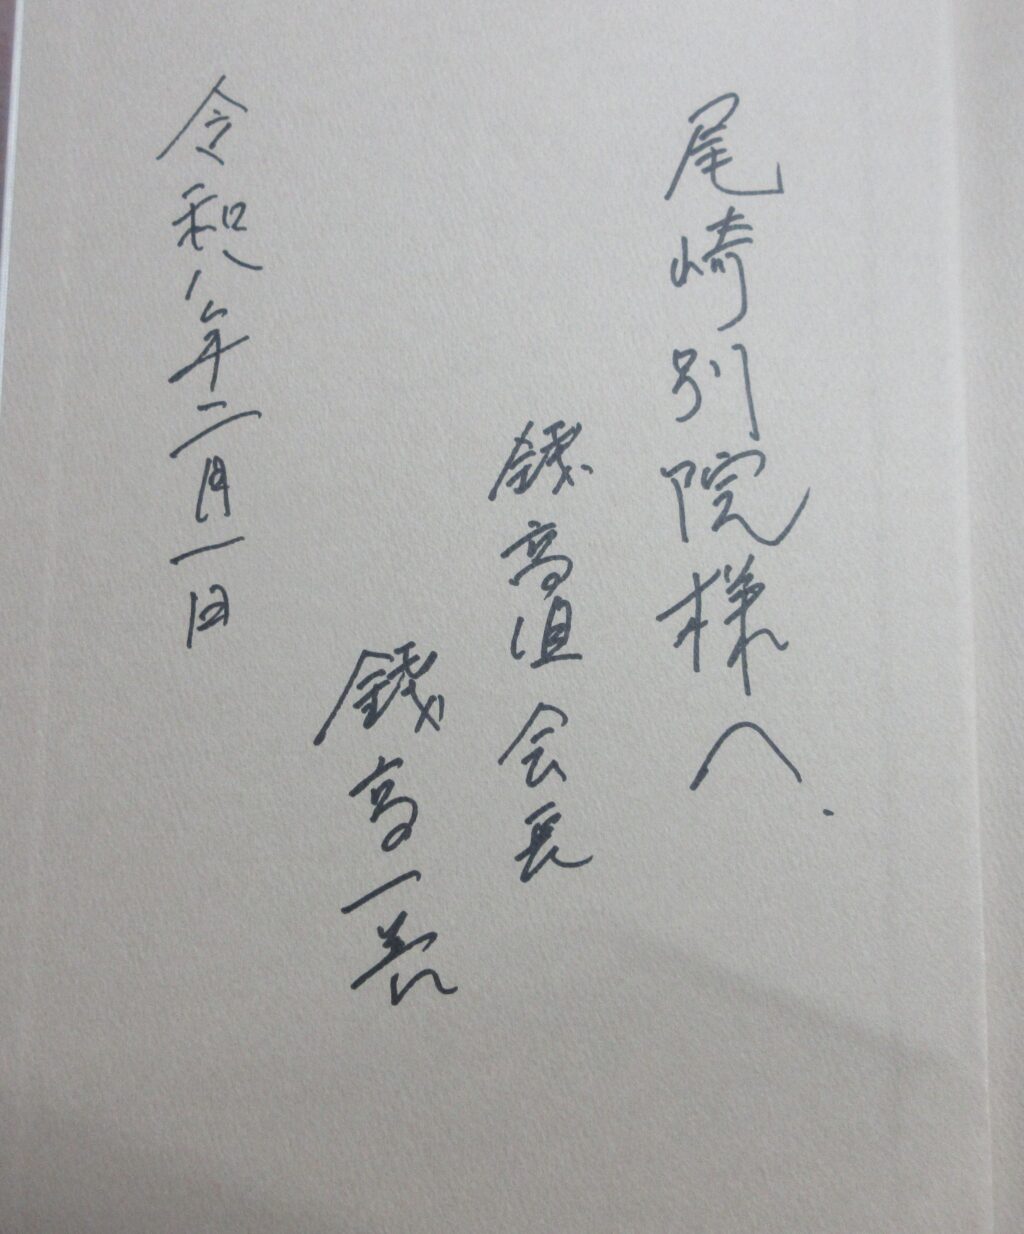 尾崎別院様へ
錢高組会長
錢高一善
令和八年二月一日